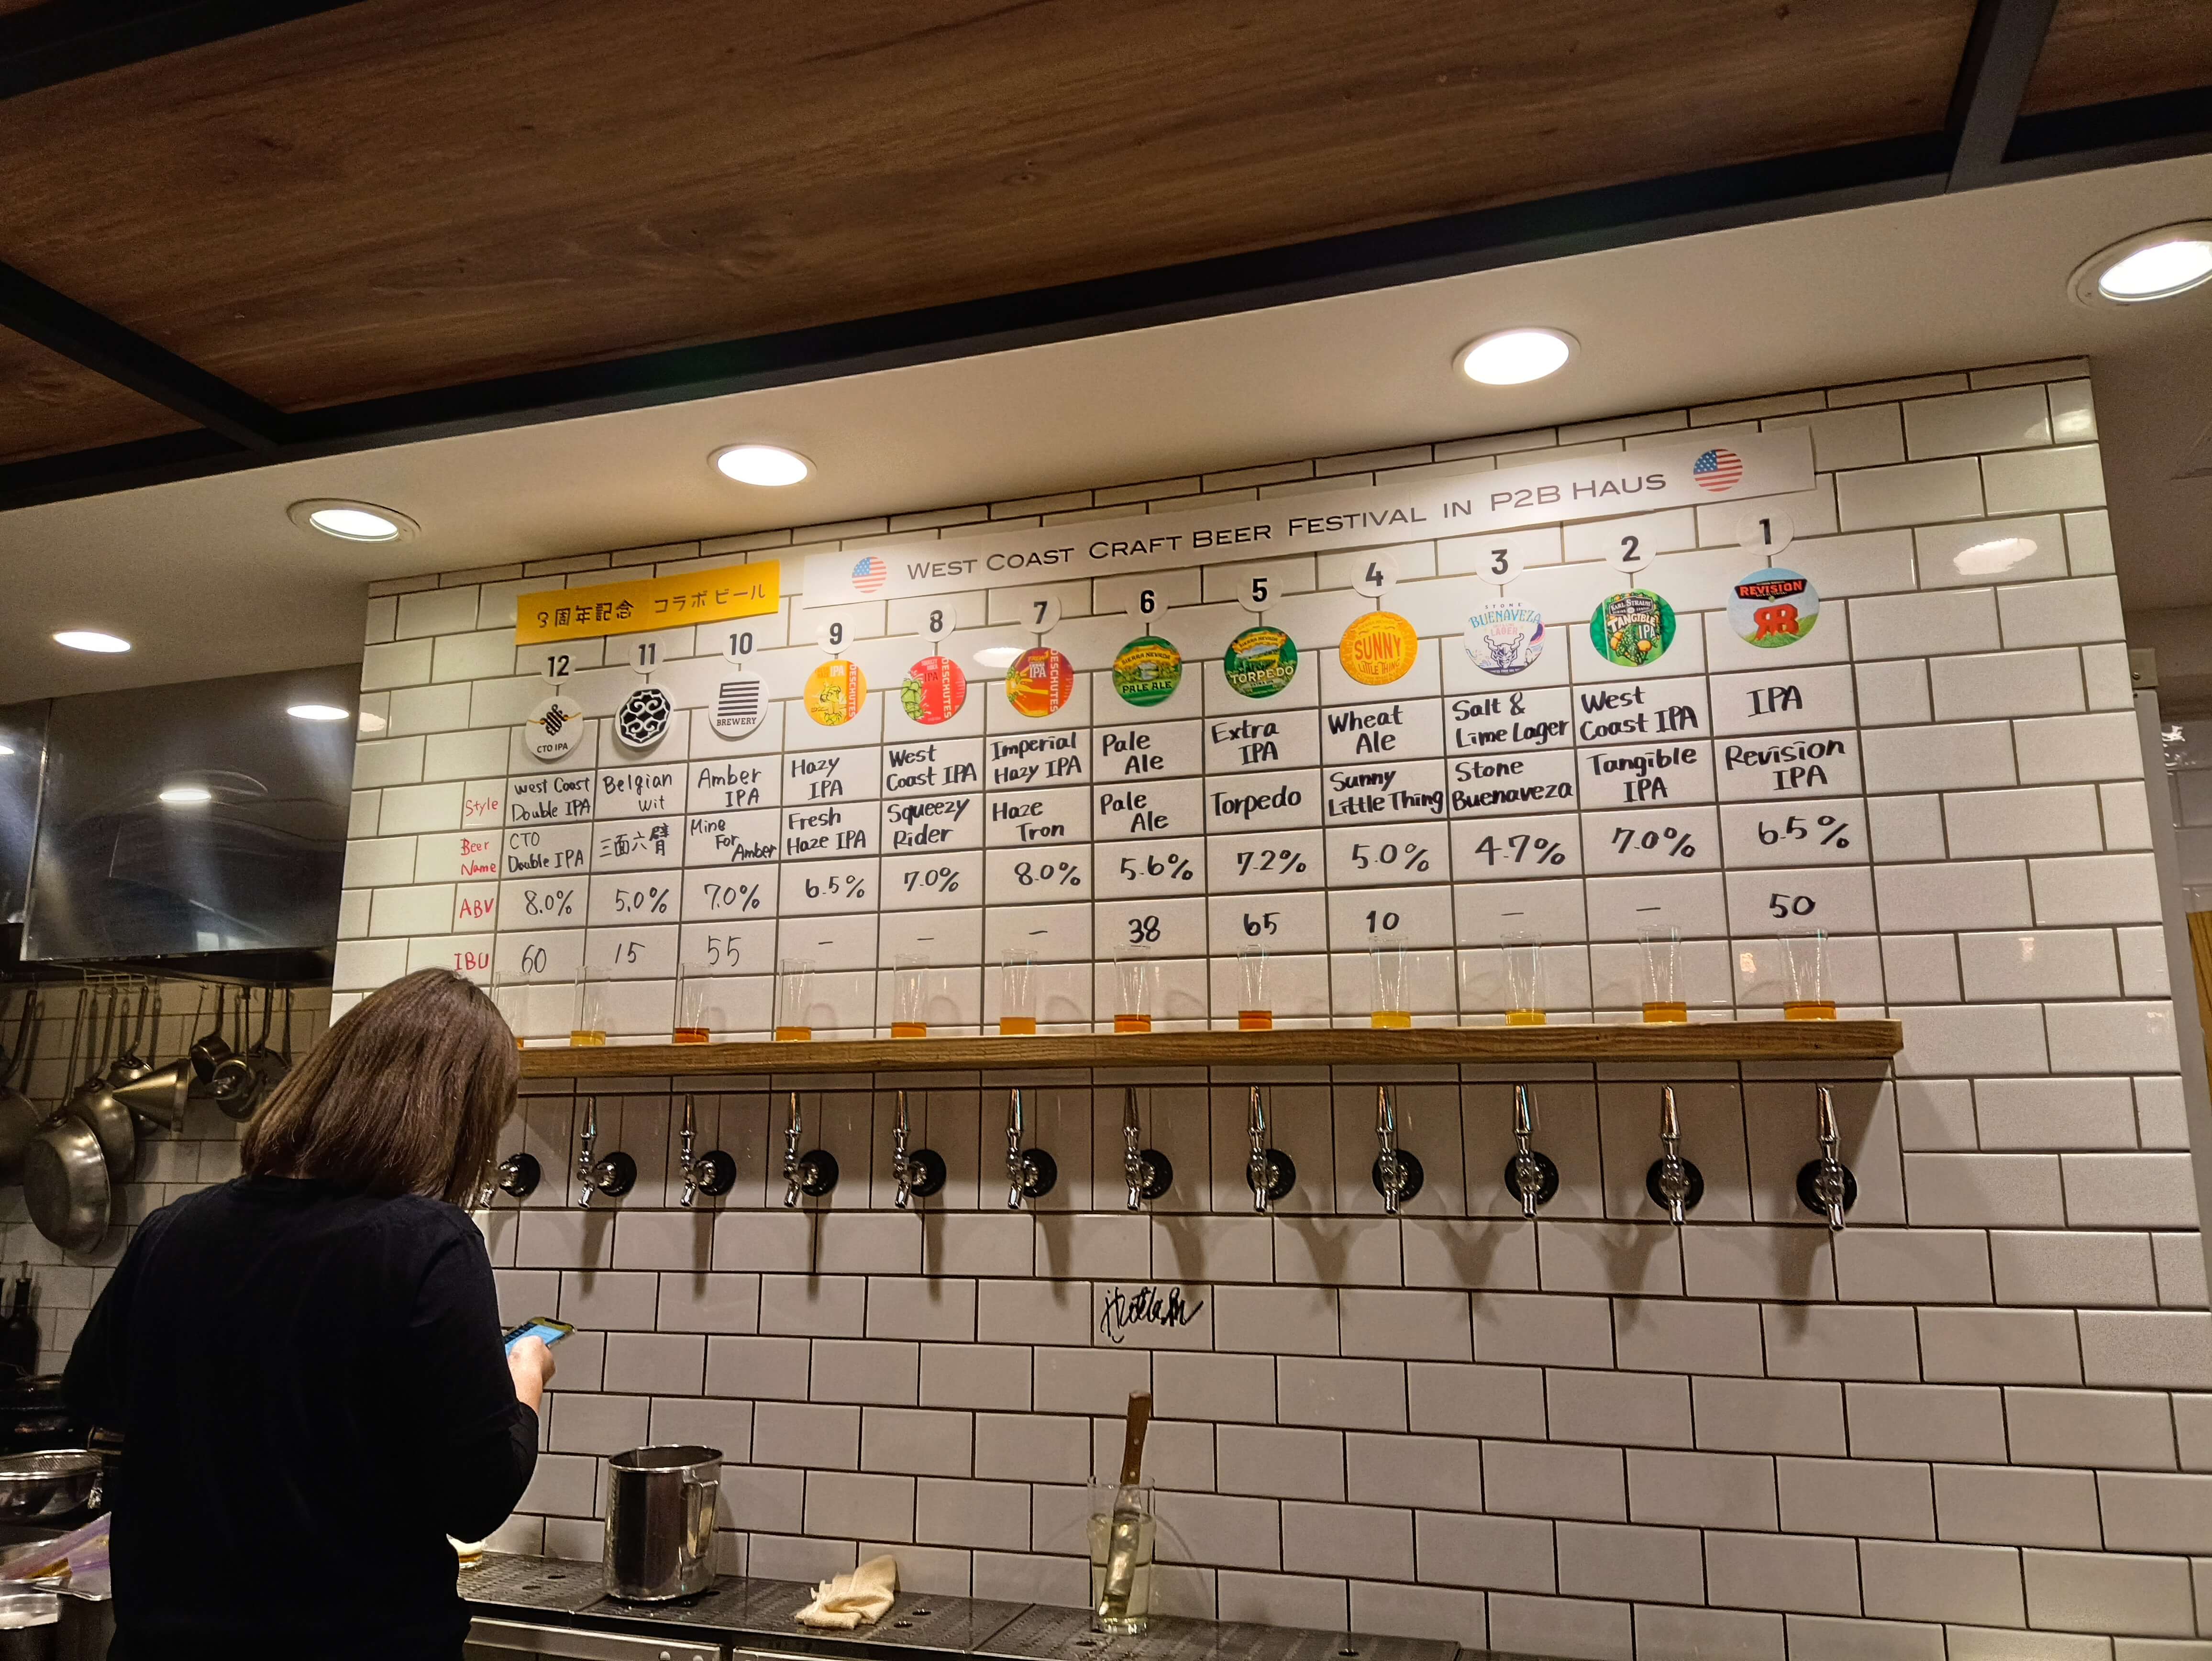 WEST COAST CRAFT BEER FESTIVAL IN P2B HAUS
3周年記念 コラボビール
12 11 10 9 8 7 6 5 4 3 2 1
CTO IPA
BREWERY
IPA
DESCHUTES
IPA
DESCHUTES
IPA
DESCHUTES
SIERRA NEVADA
PALE ALE
SIERRA NEVADA
TORPEDO
SUNNY
LITTLE THING
STONE
BUENAVEZA
LAGER
KARL STRAUSS
TANGIBLE
IPA
REVISION
Style
West Coast
Double IPA
Belgian
Wit
Amber
IPA
Hazy
IPA
West
Coast IPA
Imperial
Hazy IPA
Pale
Ale
Extra
IPA
Wheat
Ale
Salt &
Lime Lager
West
Coast IPA
IPA
Beer
Name
CTO
Double IPA
三面六臂
Mine
For
Amber
Fresh
Haze IPA
Squeezy
Rider
Haze
Tron
Pale
Ale
Torpedo
Sunny
Little Thing
Stone
Buenaveza
Tangible
IPA
Revision
IPA
ABV 8.0% 5.0% 7.0% 6.5% 7.0% 8.0% 5.6% 7.2% 5.0% 4.7% 7.0% 6.5%
IBU 60 15 55 - - - 38 65 10 - - 50